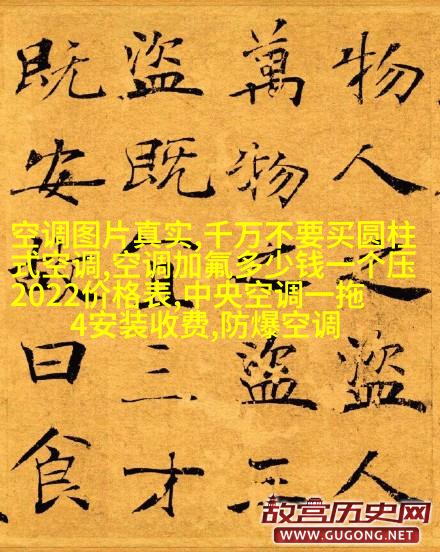 物人盜人
萬物盜三
盜既三才
既安曰食
空调图片真实,千万不要买圆柱
式空调,空调加氟多少钱一个压
2022价格表,中央空调一拖
4安装收费,防爆空调
故宫历史网
WWW.GUGONG.NET